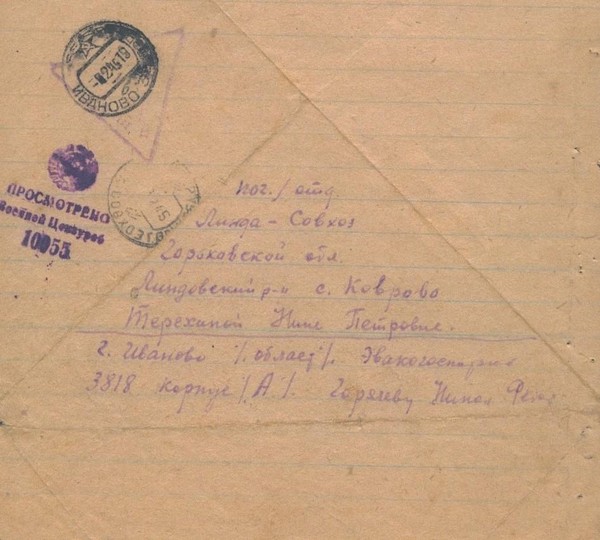 ИВАНОВО
ПРОСМОТРЕНО
Военной Цензурой
10955
пог./отд.
Линда - Совхоз
Горьковской обл.
Линдовский р-н с. Коврово
Терехиной Нине Петровне.
г. Иваново /. област/. Эвакогоспиталь
3818 корпус /А/. Горячеву